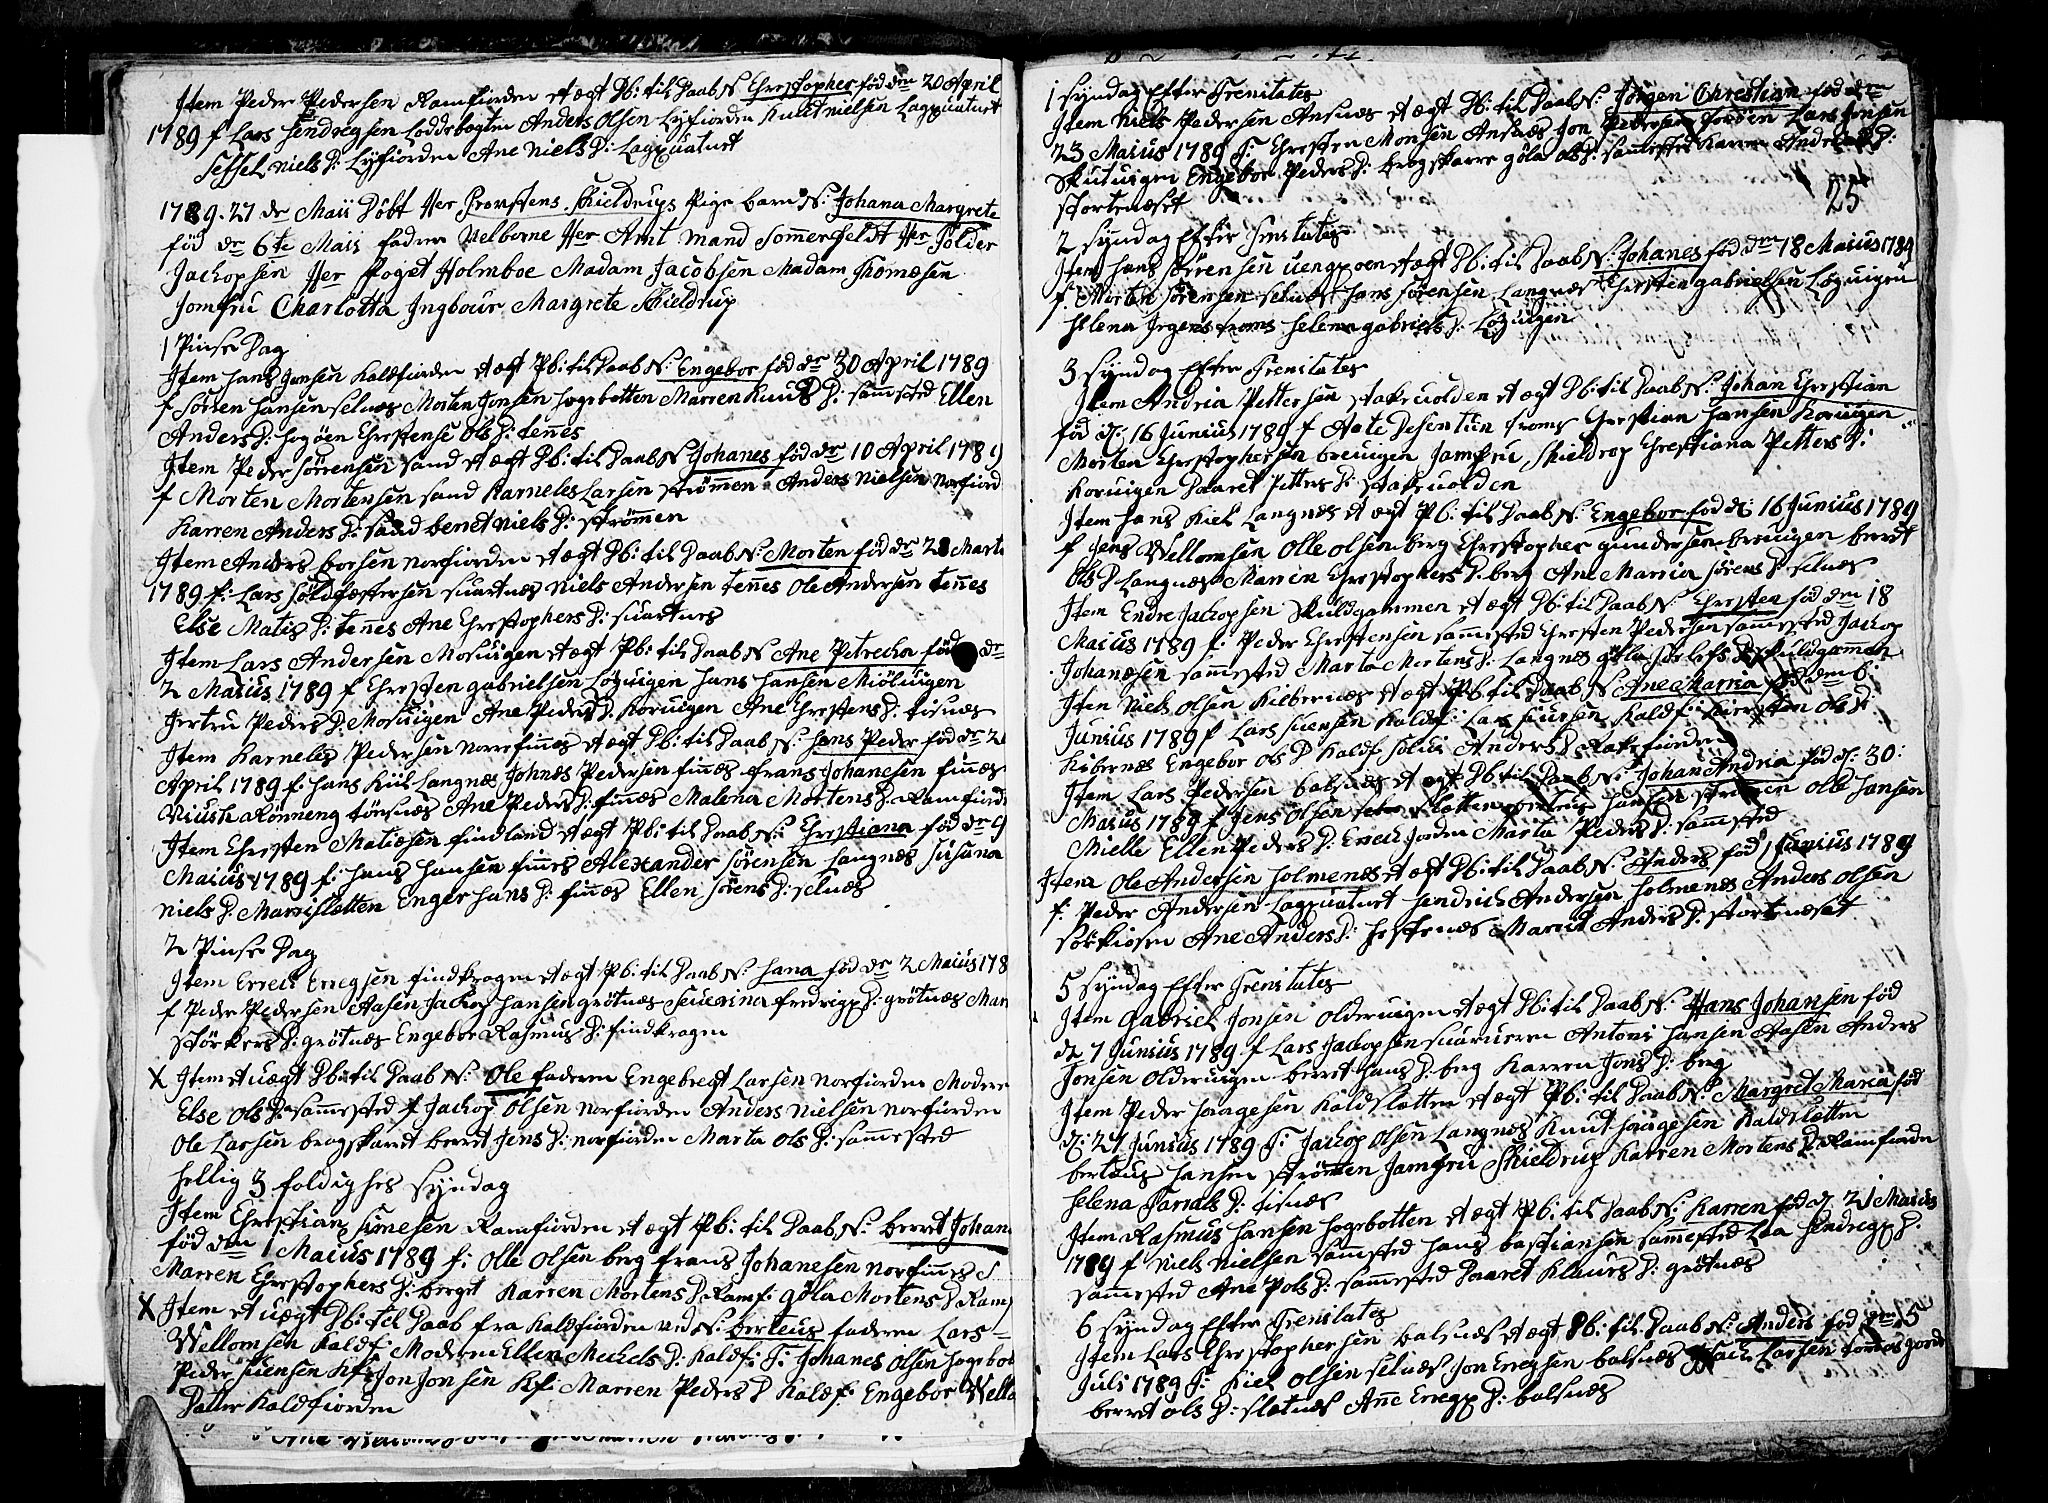 Jtem Peder Pedersen Ramfiorden et ægt Pb: til Daab N Chrestopher föd dnr 20 April
1789 f Lars Hendregsen Loddebogten Anders Olsen Lyfiorden Knut nielsen Lagxuatnet
Sessel niels D: Lyfiorden Ane niels D: Lagxuatnet
1789. 27 dr Maii Döbt Her Provstens Skieldrups Pige barn N: Johana Margrete
föd dr 6te Maii fadere Velborne Her Amt mand Sommerfeldt Her Polder
Jackopsen Her foget Holmboe Madam Jacobsen Madam Thomesen
Jomfru Charlotta Jngbour Margrete Skieldrup
1 Pinse Dag
Jtem hans Jonsen Kaldfiorden et ægt Pb: til Daab N: Engebor föd dr 30 April 1789
f Sörren Hansen selnæs Morten Jonsen hogebotten Marren Knuts D: samested Ellen
Anders D: hogöen Chrestense Ols D: tennes
Jtem Peder Sörrensen sand et ægt Pb: til Daab N Johanes föd dr 10 April 1789
f Morten Mortensen sand Karneles Larsen strömmen Anders Nielsen Norfiord
Karren Anders D: sand berret niels D: strömmen
Jtem Anders borsen norfiorden et ægt Pb: til Daab N: Morten föd dr 28 Marts
1789 f: Lars suartnes Niels Andersen tennes Ole Andersen tennes
Else Matis D: tennes Ane Chrestophers D: suartnes
Jtem Lars Andersen Mosuigen et ægt Pb: til Daab N Ane Petrecka föd dr
2 Maius 1789 f Chresten gabrielsen Løguigen hans Hansen Miöluigen
Jertru Peders D: Mosuigen Ane Peders D: Koruigen Ane Chrestens D: tisnæs
Jtem Karneles Pedersen Norefinnes et ægt Pb: til Daab N: hans Peder föd dr 2
April 1789 f: hans Kiil Langnæs Johnæs Pedersen finæs frans Johanesen finnes
Rönneng tönsnæs Ane Peders D: finæs Malena Mortens D: Ramfiord
Jtem Chresten Matisen findland et ægt Pb: til Daab N: Chrestiana föd dr 9
Maius 1789 f: hans Hansen finnes Alexander Sörensen Langnæs Susana
niels D: Marrisletten Enger hans D: finæs Ellen Sörens D: selnæs
2 Pinse Dag
Jtem Errech Erregsen findkragen et ægt Pb: til Daab N: hana föd dr 2 Maius 178
f Peder Pedersen Aasen Jackop Hansen grötnæs Seuerina fredrigx D: grötnæs Mar
Störkers D: grötnæs Engebor Rasmus D: findkragen
X Jtem et uægt Pb: til Daab N: Ole faderen Engebregt Larsen norfiorden Moderen
Else Ols D: sammested f Jackop Olsen norfiorden Anders Nielsen norfiorden
Ole Larsen bregskaret berret Jens D: norfiorden Marta Ols D: sammested
Hellig 3 foldighes Syndag
Jtem Chrestian Simesen Ramfiorden et ægt Pb: til Daab N: berret Johan
föd den 1 Maius 1789 f: Olle Olsen berg frans Johanesen norfinnes S
Marren Chrestophers D: berget Karren Mortens D Ramf: göla Mortens D Ram
X Jtem et uægt Pb: til Daab fra Kaldfiorden ved N: berteus faderen Lars
Wellomsen Kaldf Moderen Ellen Michels D: Kaldf: F: Johanes Olsen hogebot
Peder suensen Kf: Jon Jonsen Kf: Marren Peders D Kaldf: Engebor Wella
Datter Kaldfiorden
1 Syndag Efter Trenitates
Jtem Niels Pedersen Ansnæs et ægt Pb: til Daab N: Jörgen Chrestian föd den
23 Maius 1789 F: Chresten Monsen Ansnæs Jon Pedersen Lars Jonsen
Skutuigen Engebor Peders D: bregskarre göla Ols D: samested Karren Anders D:
stortenæset
25
2 Syndag Efter Trenitates
Jtem hans Sörrensen uengsoen et ægt Pb: til Daab N: Johanes föd den 18 Maius 1789
f Morten Sörensen selnæs hans Sörensen Langnæs Chresten gabrielsen Løguigen
Helena Jrgens troms helena gabriels D: Løguigen
3 Syndag Efter Trenitates
Jtem Andrea Pettersen stakeuolden et ægt Pb: til Daab N: Johan Chrestian
föd d: 16 Junius 1789 f troms Chrestian Hansen Koruigen
Morten Chrestophersen breuigen Jamfru Skieldrop Chrestiana Petters D:
Koruigen Daaret Petters D: stakeuolden
Jtem Hans Kiel Langnæs et ægt Pb: til Daab N: Engebor föd d: 16 Junius 1789
f Jens Wellomsen Olle Olsen berg Chrestopher gundersen breuigen berret
Ols D Langnæs Marren Chrestophers D: berg Ane Marria Sörens D: selnæs
Jtem Endre Jackopsen Skuldgammen et ægt Pb: til Daab N: Chresten föd den 18
Maius 1789 f: Peder Chrestensen samested Chresten Pedersen samested Jackop
Johanesen samested Marta Mortens D: Langnes göla D skuldgamen
Jtem Niels Olsen Kilbernæs et ægt Pb til Daab N Ane Marria föd den 6
Junius 1789 f Lars suensen Kaldf: Lars suensen Kaldf: Ols D:
Kibernæs Engebor Ols D Kaldf Solui Anders D Rakefiorden
Jtem Lars Pedersen balsnæs et ægt Pb til Daab N: Johan Andria föd d: 30:
Maius 1789 f Jens Olsen sletten petrus Hansen Ole Hansen
Mielle Ellen Peders D: Marta Peders D: sammested
Jtem Ole Andersen Holmenæs et ægt Pb: til Daab N: Anders föd 1 Junius 1789
f: Peder Andersen Lagxuatnet Hendrich Andersen Holmenæs Anders Olsen
Ane Anders D: Marrit Anders D: stortenæset
5 Syndag Efter Trenitates
Jtem Gabriel Jonsen olderuigen et ægt Pb: til Daab N: Hans Johansen föd
d: 7 Junius 1789 f Lars Jackopsen suarueren Antoni Hansen Aasen Anders
Jonsen olderuigen berret Hans D: berg Karren Jons D: berg
Jtem Peder Kaldsletten et ægt Pb: til Daab N: Margret Maria föd
d: 27 Junius 1789 F: Jackop Olsen Langnæs Knut Kaldsletten
berteus Hansen strömmen Jamfru Skieldrup Karren Mortens D: Ramfiorde
Helena D: tisnæs
Jtem Rasmus Hansen Hogebotten et ægt Pb: til Daab N: Karren föd d: 21 Maius
1789 f Niels Nielsen samested Hans bastiansen samested Lea Hendregx D:
sammested Ane Pols D: sammested Daaret Klaues D: grötnæs
6 Syndag Efter Trenitates
Jtem Lars Chrestophersen balsnæs et ægt Pb: til Daab N: Anders föd den 15
Juli 1789 F: Kiel Olsen selnæs Jon Erregsen balsnæs Larsen
berret Ols D: sletnæs Ane Erregx D: balsnæs